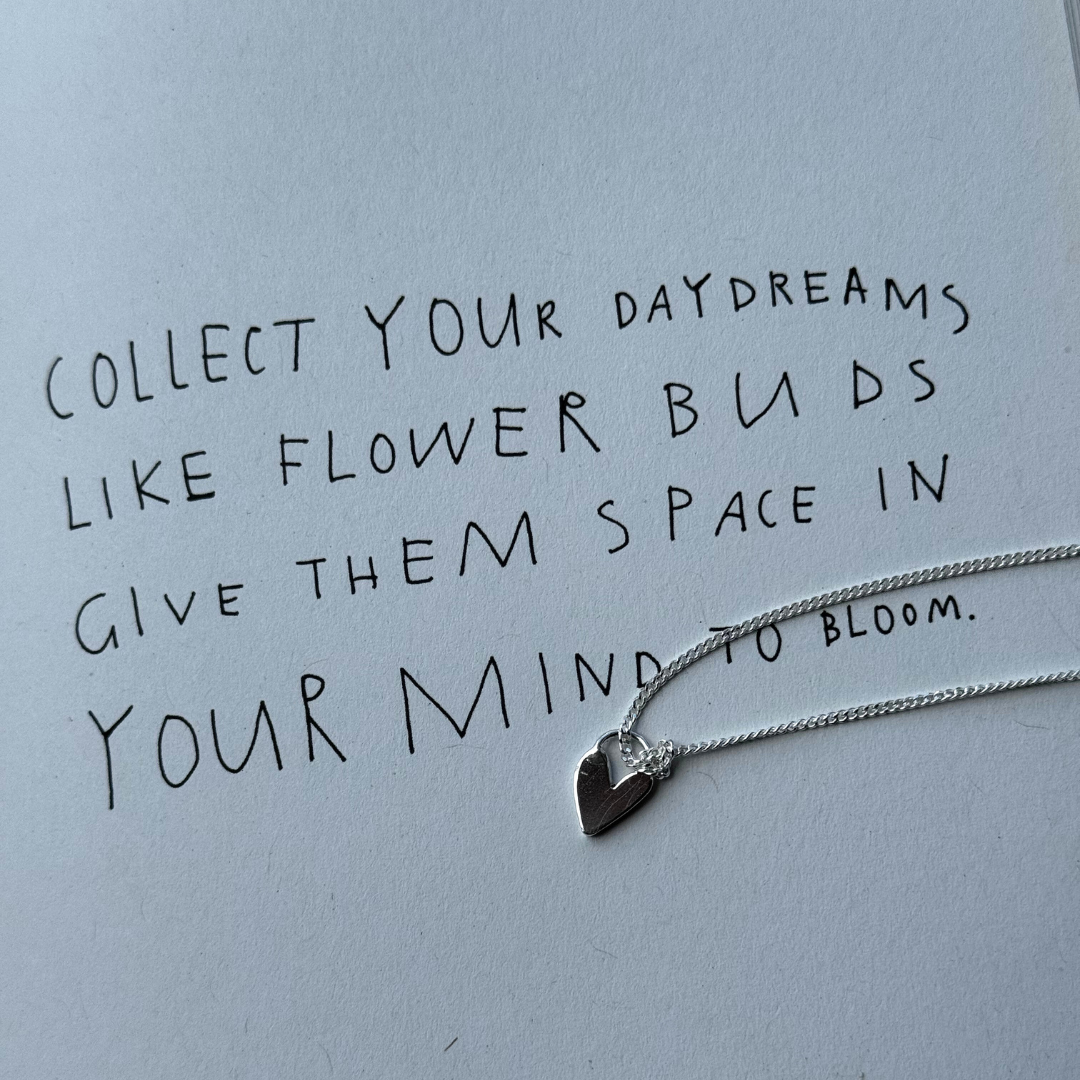 COLLECT YOUR DAYDREAMS
LIKE FLOWER BUDS
GIVE THEM SPACE IN
YOUR MIND TO BLOOM.